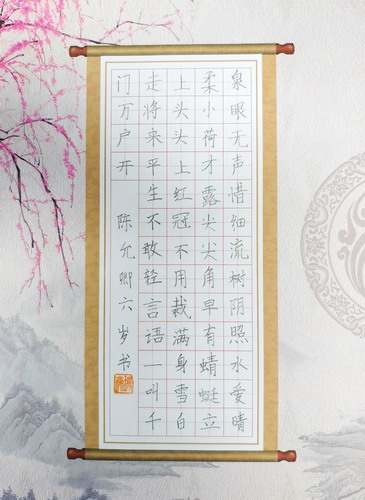 泉眼无声惜细流树阴照水爱晴
柔小荷才露尖尖角早有蜻蜓立
上头头上红冠不用裁满身雪白
走将来平生不敢轻言语一叫千
门万户开 陈允卿六岁书